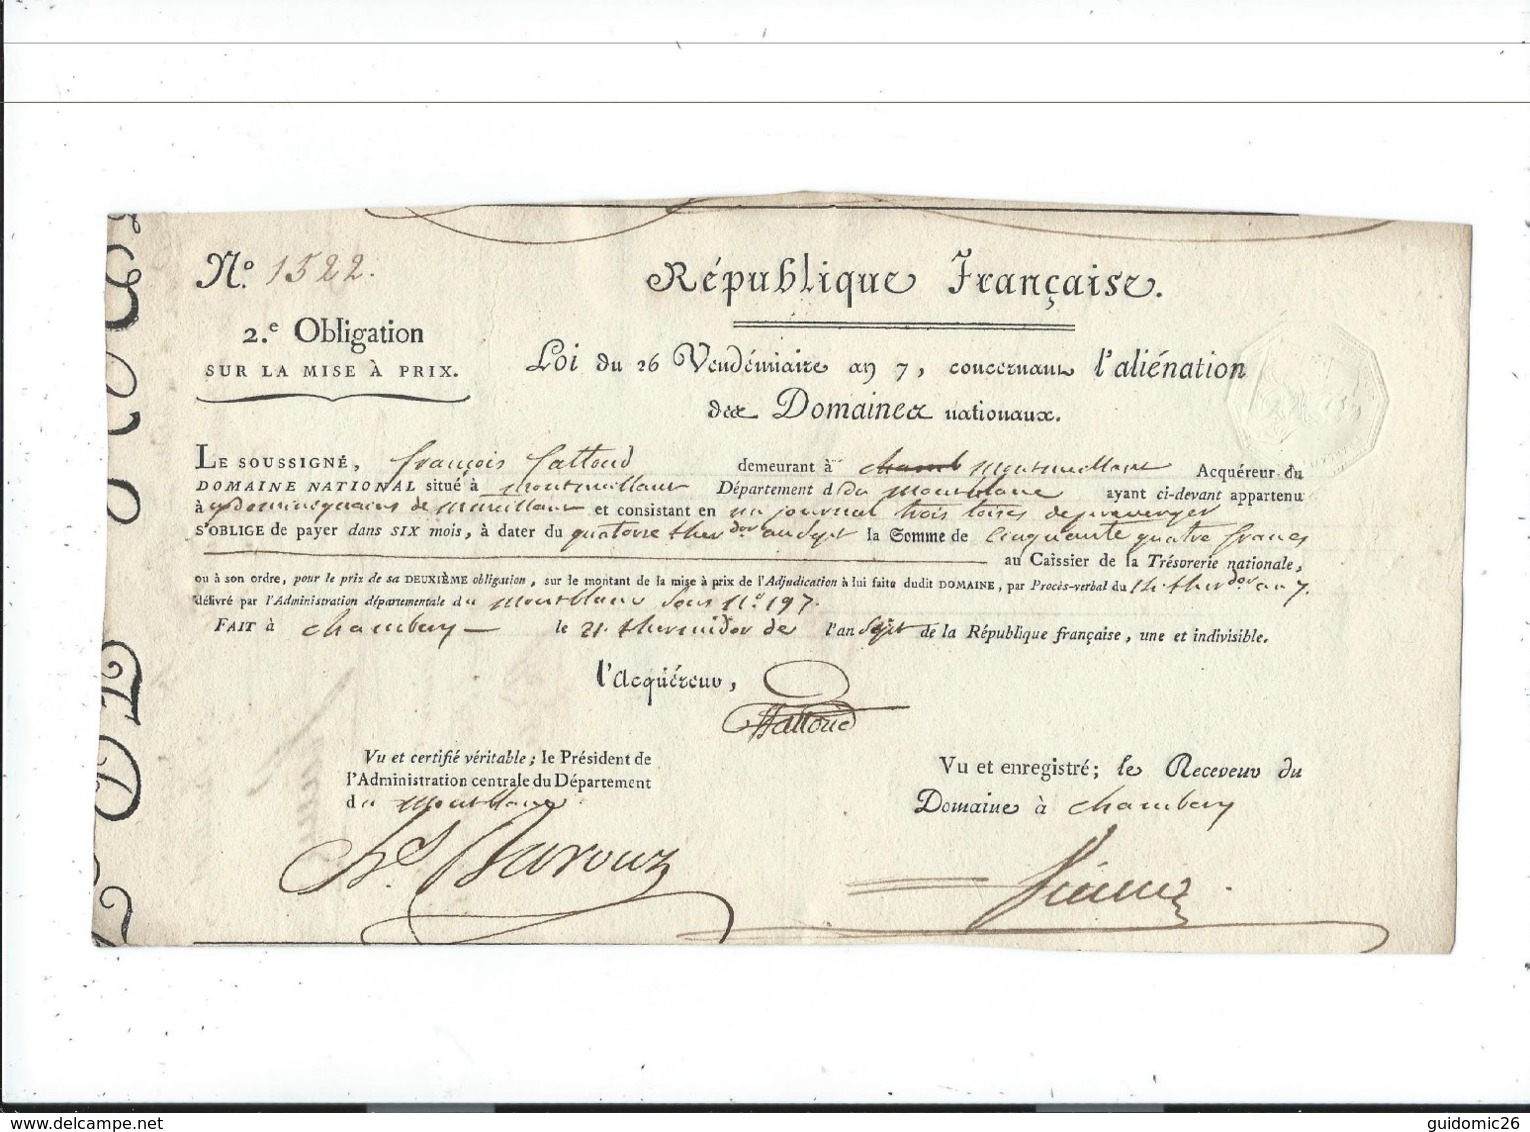 N.º 1522.
République Française.
2.e Obligation
SUR LA MISE À PRIX.
Loi du 26 Vendémiaire an 7, concernant l'aliénation
des Domaines nationaux.
LE SOUSSIGNÉ, françois fattoud demeurant à montmeillant Acquéreur du
DOMAINE NATIONAL situé à montmeillant Département d du montblanc ayant ci-devant appartenu
à de montmeillant et consistant en un journal trois toises de pré verger
S'OBLIGE de payer dans SIX mois, à dater du quatorze ther.dor an sept la Somme de cinquante quatre francs
au Caissier de la Trésorerie nationale,
ou à son ordre, pour le prix de sa DEUXIÈME obligation, sur le montant de la mise à prix de l'Adjudication à lui faite dudit DOMAINE, par Procès-verbal du 14 ther.dor an 7.
délivré par l'Administration départementale du montblanc sous N.º 197.
FAIT à chambery le 21 thermidor de l'an sept de la République française, une et indivisible.
l'Acquéreur,
fattoud
Vu et certifié véritable; le Président de
l'Administration centrale du Département
du montblanc
Vu et enregistré; le Receveur du
Domaine à chambery
guidomic26